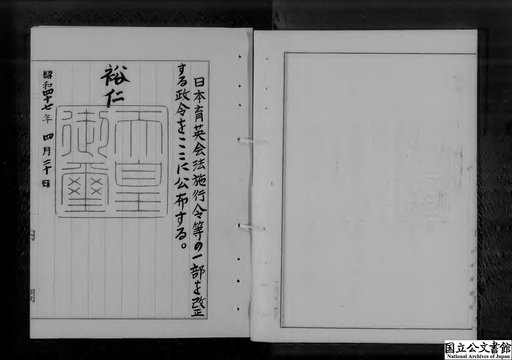 日本育英会法施行令等の一部を改正
する政令をここに公布する。
裕仁
天皇
御璽
昭和四十七年 四月二十日
内閣
国立公文書館
National Archives of Japan